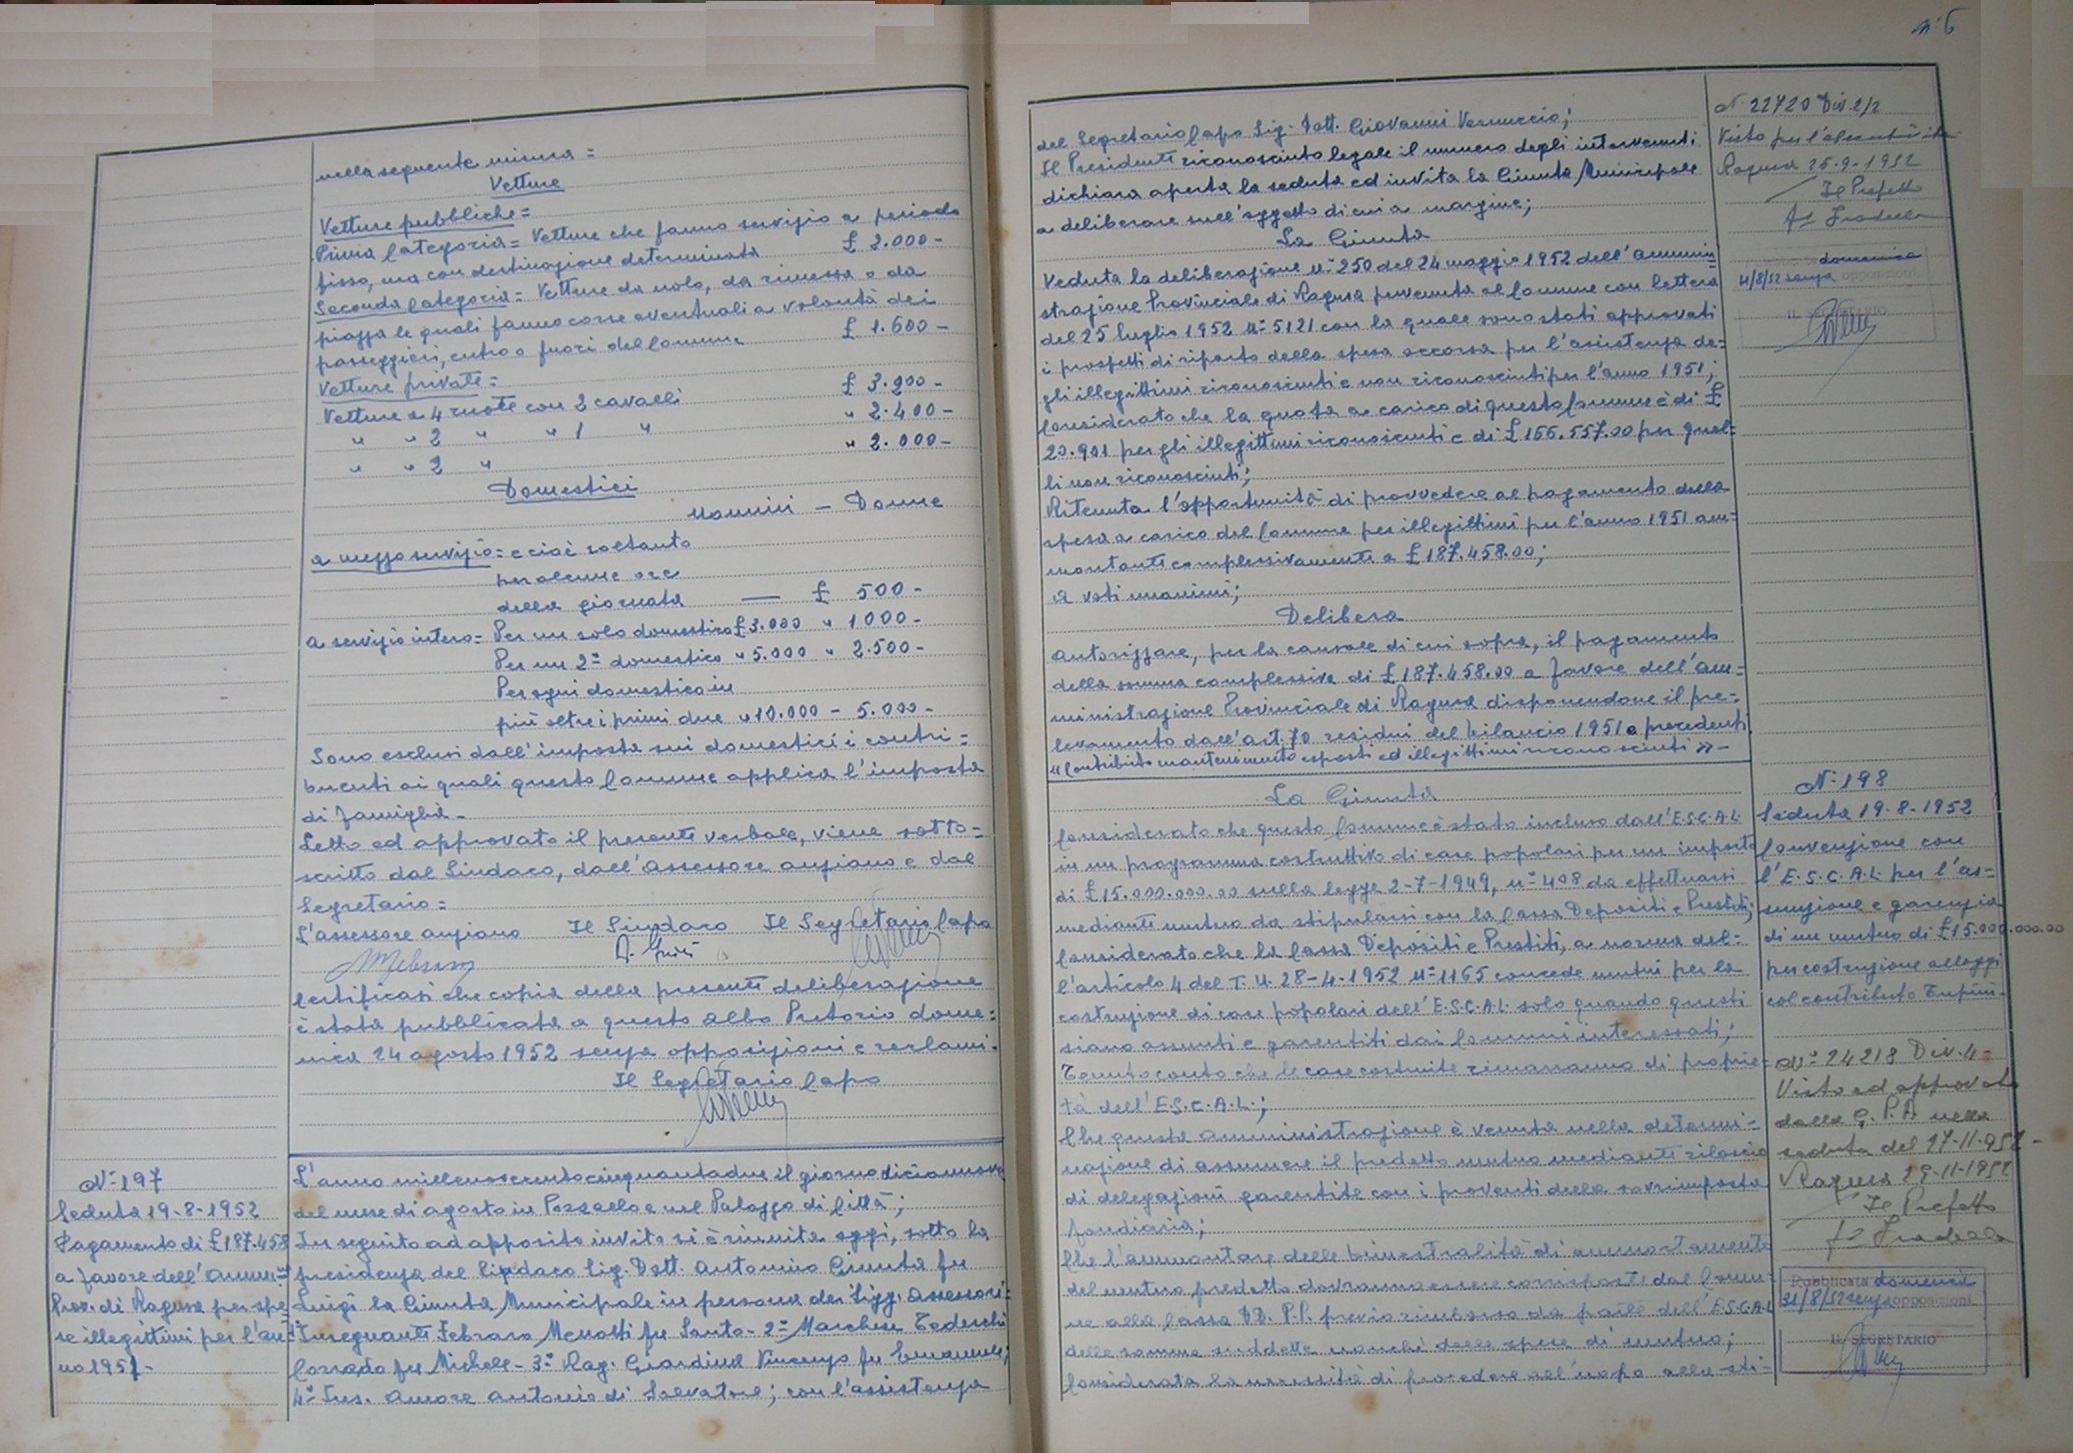 nella seguente misura =
Vetture
Vetture pubbliche =
Prima Categoria = Vetture che fanno servizio a periodo
fisso, ma con destinazione determinata £ 2.000 -
Seconda Categoria = Vetture da nolo, da rimessa o da
piazza le quali fanno corse eventuali a volontà dei
passeggieri, entro o fuori del Comune £ 1.600 -
Vetture private =
Vetture a 4 ruote con 2 cavalli £ 3.200 -
" " 2 " " 1 " " 2.400 -
" " 2 " " 2.000 -
Domestici
Uomini - Donne
a mezzo servizio = e cioè soltanto
per alcune ore
della giornata — £ 500 -
a servizio intero = Per un solo domestico £ 3.000 " 1000 -
Per un 2° domestico " 5.000 " 2.500 -
Per ogni domestico in
più oltre i primi due " 10.000 - 5.000 -
Sono esclusi dall'imposta sui domestici i contri=
buenti ai quali questo Comune applica l'imposta
di famiglia -
Letto ed approvato il presente verbale, viene sotto=
scritto dal Sindaco, dall'assessore anziano e dal
Segretario =
L'assessore anziano Il Sindaco Il Segretario Capo
Certificasi che copia della presente deliberazione
è stata pubblicata a questo albo Pretorio dome=
nica 24 agosto 1952 senza opposizioni e reclami.
Il Segretario Capo
N° 197
Seduta 19-8-1952
Pagamento di £ 187.458
a favore dell'Amm=ne
Prov. di Ragusa per spe=
se illegittimi per l'an=
no 1951 -
L'anno millenovecentocinquantadue il giorno diciannove
del mese di agosto in Pozzallo e nel Palazzo di Città;
In seguito ad apposito invito si è riunita oggi, sotto la
presidenza del Sindaco Sig. Dott. Antonino Giunta fu
Luigi la Giunta Municipale in persona dei Sigg. assessori:
1° Insegnante Febraro Menotti fu Santo - 2° Marchese Tedeschi
Corrado fu Michele - 3° Rag. Giardina Vincenzo fu Emanuele;
4° Ins. Amore Antonio di Salvatore; con l'assistenza
n. 6
del Segretario Capo Sig. Dott. Giovanni Vernuccio;
Il Presidente riconosciuto legale il numero degli intervenuti
dichiara aperta la seduta ed invita la Giunta Municipale
a deliberare sull'oggetto di cui a margine;
La Giunta
Veduta la deliberazione N° 250 del 24 maggio 1952 dell'Ammini=
strazione Provinciale di Ragusa pervenuta al Comune con lettera
del 25 luglio 1952 N° 5121 con la quale sono stati approvati
i prospetti di riparto della spesa occorsa per l'assistenza de=
gli illegittimi riconosciuti e non riconosciuti per l'anno 1951;
Considerato che la quota a carico di questo Comune è di £
20.901 per gli illegittimi riconosciuti e di £ 166.557.00 per quel=
li non riconosciuti;
Ritenuta l'opportunità di provvedere al pagamento della
spesa a carico del Comune per illegittimi per l'anno 1951 am=
montante complessivamente a £ 187.458.00;
a voti unanimi;
Delibera
Autorizzare, per la causale di cui sopra, il pagamento
della somma complessiva di £ 187.458.00 a favore dell'Am=
ministrazione Provinciale di Ragusa disponendone il pre=
levamento dall'art. 70 residui del bilancio 1951 e precedenti
"Contributo mantenimento esposti ed illegittimi riconosciuti" -
N. 22720 Div. 2/2
Visto per l'esecutività
Ragusa 25-9-1952
Il Prefetto
domenica
senza opposizioni
IL SEGRETARIO
La Giunta
Considerato che questo Comune è stato incluso dall'E.S.C.A.L.
in un programma costruttivo di case popolari per un importo
di £ 15.000.000.00 sulla legge 2-7-1949, n° 408 da effettuarsi
mediante mutuo da stipularsi con la Cassa Depositi e Prestiti;
Considerato che la Cassa Depositi e Prestiti, a norma del=
l'articolo 4 del T.U. 28-4-1952 N° 1165 concede mutui per la
costruzione di case popolari dell'E.S.C.A.L. solo quando questi
siano assunti e garentiti dai Comuni interessati;
Tenuto conto che le case costruite rimarranno di proprie=
tà dell'E.S.C.A.L.;
Che questa amministrazione è venuta nella determi=
nazione di assumere il predetto mutuo mediante rilascio
di delegazioni garentite con i proventi della sovrimposta
fondiaria;
Che l'ammontare delle bimestralità di ammortamento
del mutuo predetto dovranno essere corrisposte dal Comu=
ne alla Cassa DD. P.P. previo rimborso da parte dell'E.S.C.A.L.
delle somme suddette nonché delle spese di mutuo;
Considerata la necessità di procedere all'uopo alla sti=
N° 198
Seduta 19-8-1952
Convenzione con
l'E.S.C.A.L. per l'as=
sunzione e garenzia
di un mutuo di £ 15.000.000.00
per costruzione alloggi
col contributo Tupini -
N° 24218 Div. 4
Visto ed approvato
dalla G.P.A. nella
seduta del 27-11-952 -
Ragusa 29-11-1952
Il Prefetto
Pubblicata domenica
31/8/52 senza opposizioni
IL SEGRETARIO